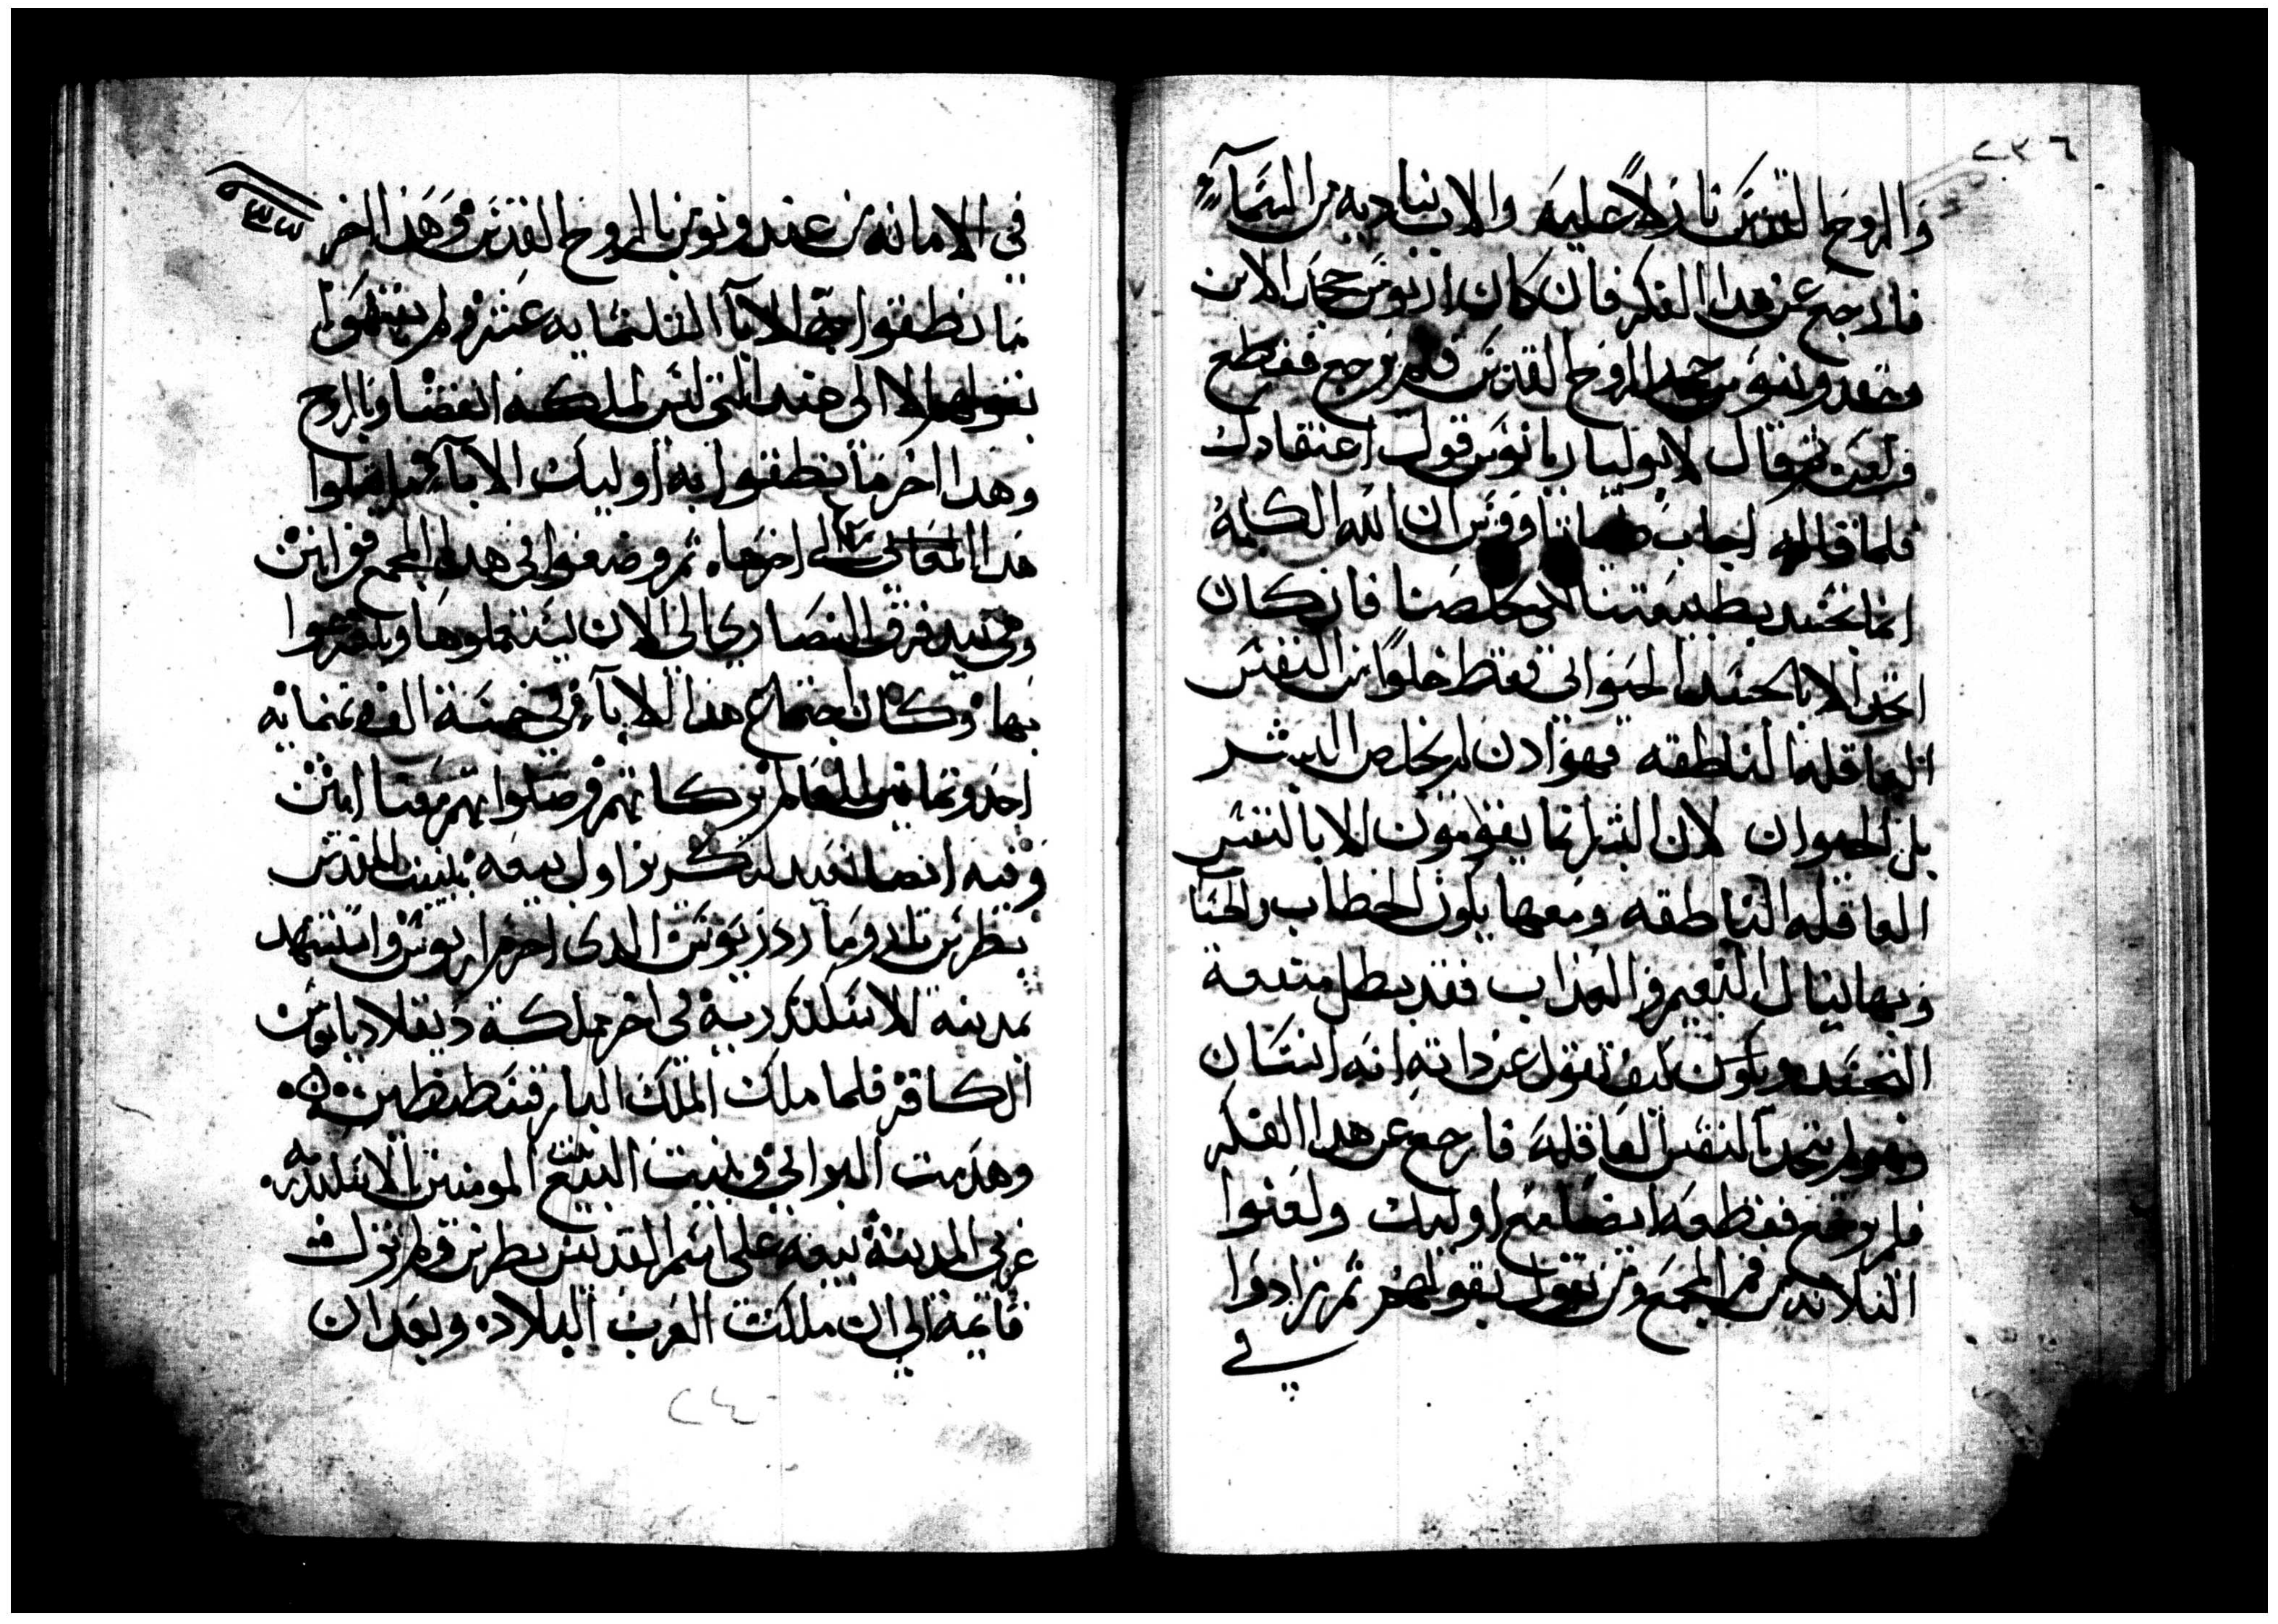 ٢٣٦
والروح القدس نازلاً عليه والاب يناديه من السماء
فارجع عن هدا الفكر فان كان اريوس جحد الابن
جحد الروح القدس فلم يرجع فقطع
ولعن ثم قال لابوليناريانوس قول اعتقادك
فلما قاله اجاب وقيس ان الله الكلمة
انما تجسد بطبيعتنا لكي يخلصنا فان كان
اتحد الا بالجسد الحيواني فقط خلوًا من النفس
العاقله الناطقه فهو ادن لم يخلص البشر
بل الحيوان لان البشر انما يقومون الا بالنفس
العاقله الناطقه ومعها يكون الخطاب والحسا
وبها ينال النعيم والعداب فقد بطل منفعة
التجسد ويكون كيف تقول عن داته انه انسان
وهو لم يتحد بالنفس العاقله فارجع عن هدا الفكر
فلم يرجع فقطعه ايضا مع اوليك ولعنوا
التلاته من فم المجمع ومن يقول بقولهم ثم زادوا
في
في الامانه من عند ونومن بالروح القدس وهدا اخر
ما نطقوا به الابا التلتمايه عشر ولم
الا الى هند التي ليس لملكه انقضا وبالروح
وهدا اخر ما نطقوا به اوليك الابا
هدا الى اخرها ثم وضعوا في هدا المجمع قوانين
وهي بيد فرق النصارى الى الان يستعملوها
بها وكان اجتماع هدا الابا في خمسة الف وتمنمايه
احد وتمانين للعالم بركاتهم وصلواتهم معنا امين
وفيه ايضا نعيد لتذكرنا اول بيعه بنيت للقديس
بطرس الدي احرم اريوس واستشهد
بمدينه الاسكندرية في اخر مملكة ديقلاديانوس
الكافر فلما ملك الملك البار قسطنطين
وهدمت البرابي وبنيت البيع المومنين الاسكندريه
غربي المدينة بيعه على اسم القديس بطرس ولم تزل
قايمة الى ان ملكت العرب البلاد وبعد ان